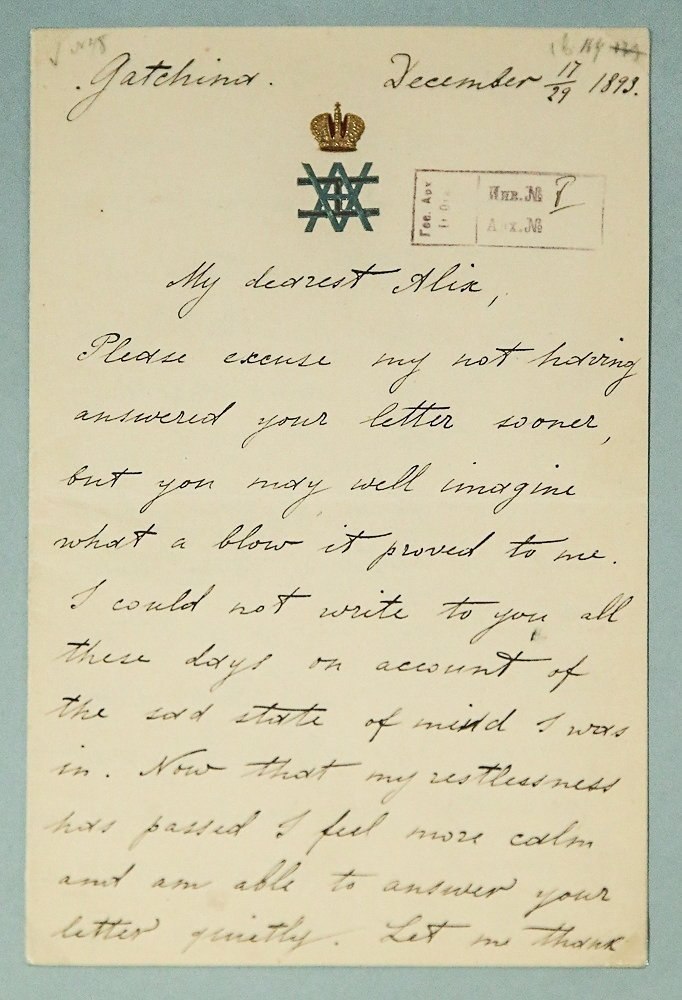 Gatchina. December 17/29 1893.
Инв.№ I
Арх.№
My dearest Alix,
Please excuse my not having
answered your letter sooner,
but you may well imagine
what a blow it proved to me.
I could not write to you all
these days on account of
the sad state of mind I was
in. Now that my restlessness
has passed I feel more calm
and am able to answer your
letter quietly. Let me thank